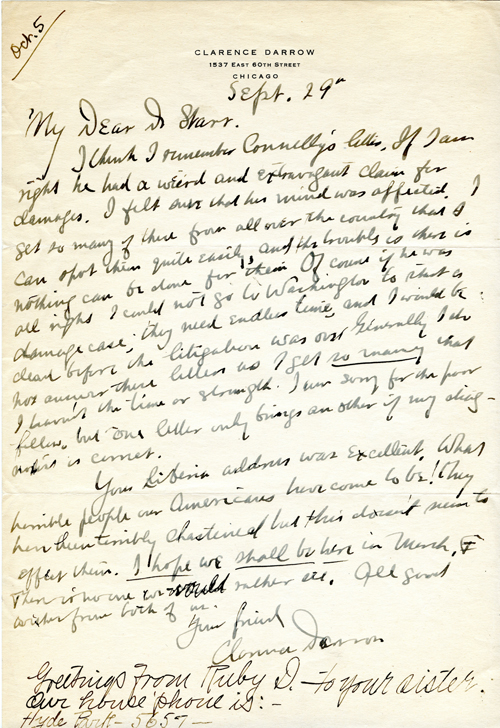 Oct. 5
CLARENCE DARROW
1537 EAST 60TH STREET
CHICAGO
Sept. 29th
My Dear Dr Starr.
I think I remember Connelly's letter. If I am
right he had a weird and extravagant claim for
damages. I felt sure that his mind was affected. I
get so many of these from all over the country that I
can spot them quite easily and the trouble is there is
nothing can be done for them. Of course if he was
all right I could not go to Washington to start a
damage case; they need endless time, and I would be
dead before the litigation was over. Generally I do
not answer these letters as I get so many that
I haven't the time or strength. I am sorry for the poor
fellow, but one letter only brings another if my diag-
nosis is correct.
Your Liberia address was excellent. What
horrible people our Americans have come to be! They
have been terribly chastened but this doesn't seem to
affect them. I hope we shall be here in March, &
there is no one we would rather see. All good
wishes from both of us.
Your friend
Clarence Darrow
Greetings from Ruby D. - to your sister.
Our house 'phone is:-
Hyde Park - 5657 -